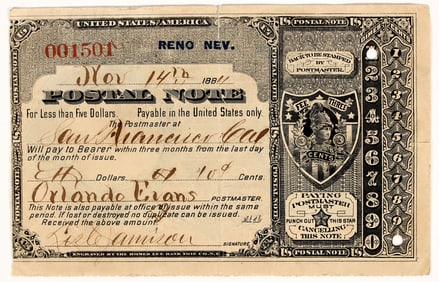 UNITED STATES OF AMERICA
15 POSTAL NOTE 15
001501 RENO NEV.
Nov 14th 1884
POSTAL NOTE
For Less than Five Dollars. Payable in the United States only.
The Postmaster at
San Francisco Cal
Will pay to Bearer within three months from the last day
of the month of issue.
Dollars 10 Cents.
Orlando Evans POSTMASTER.
This Note is also payable at office of issue within the same
period. If lost or destroyed no duplicate can be issued.
Received the above amount
SIGNATURE
ENGRAVED BY THE HOMER LEE BANK NOTE CO. N.Y.
BACK TO BE STAMPED
BY
POSTMASTER.
FEE THREE
CENTS
PAYING
POSTMASTER
MUST
PUNCH OUT THIS STAR
CANCELLING
THIS NOTE
POSTAL NOTE
1
2
3
4
5
6
7
8
9
0